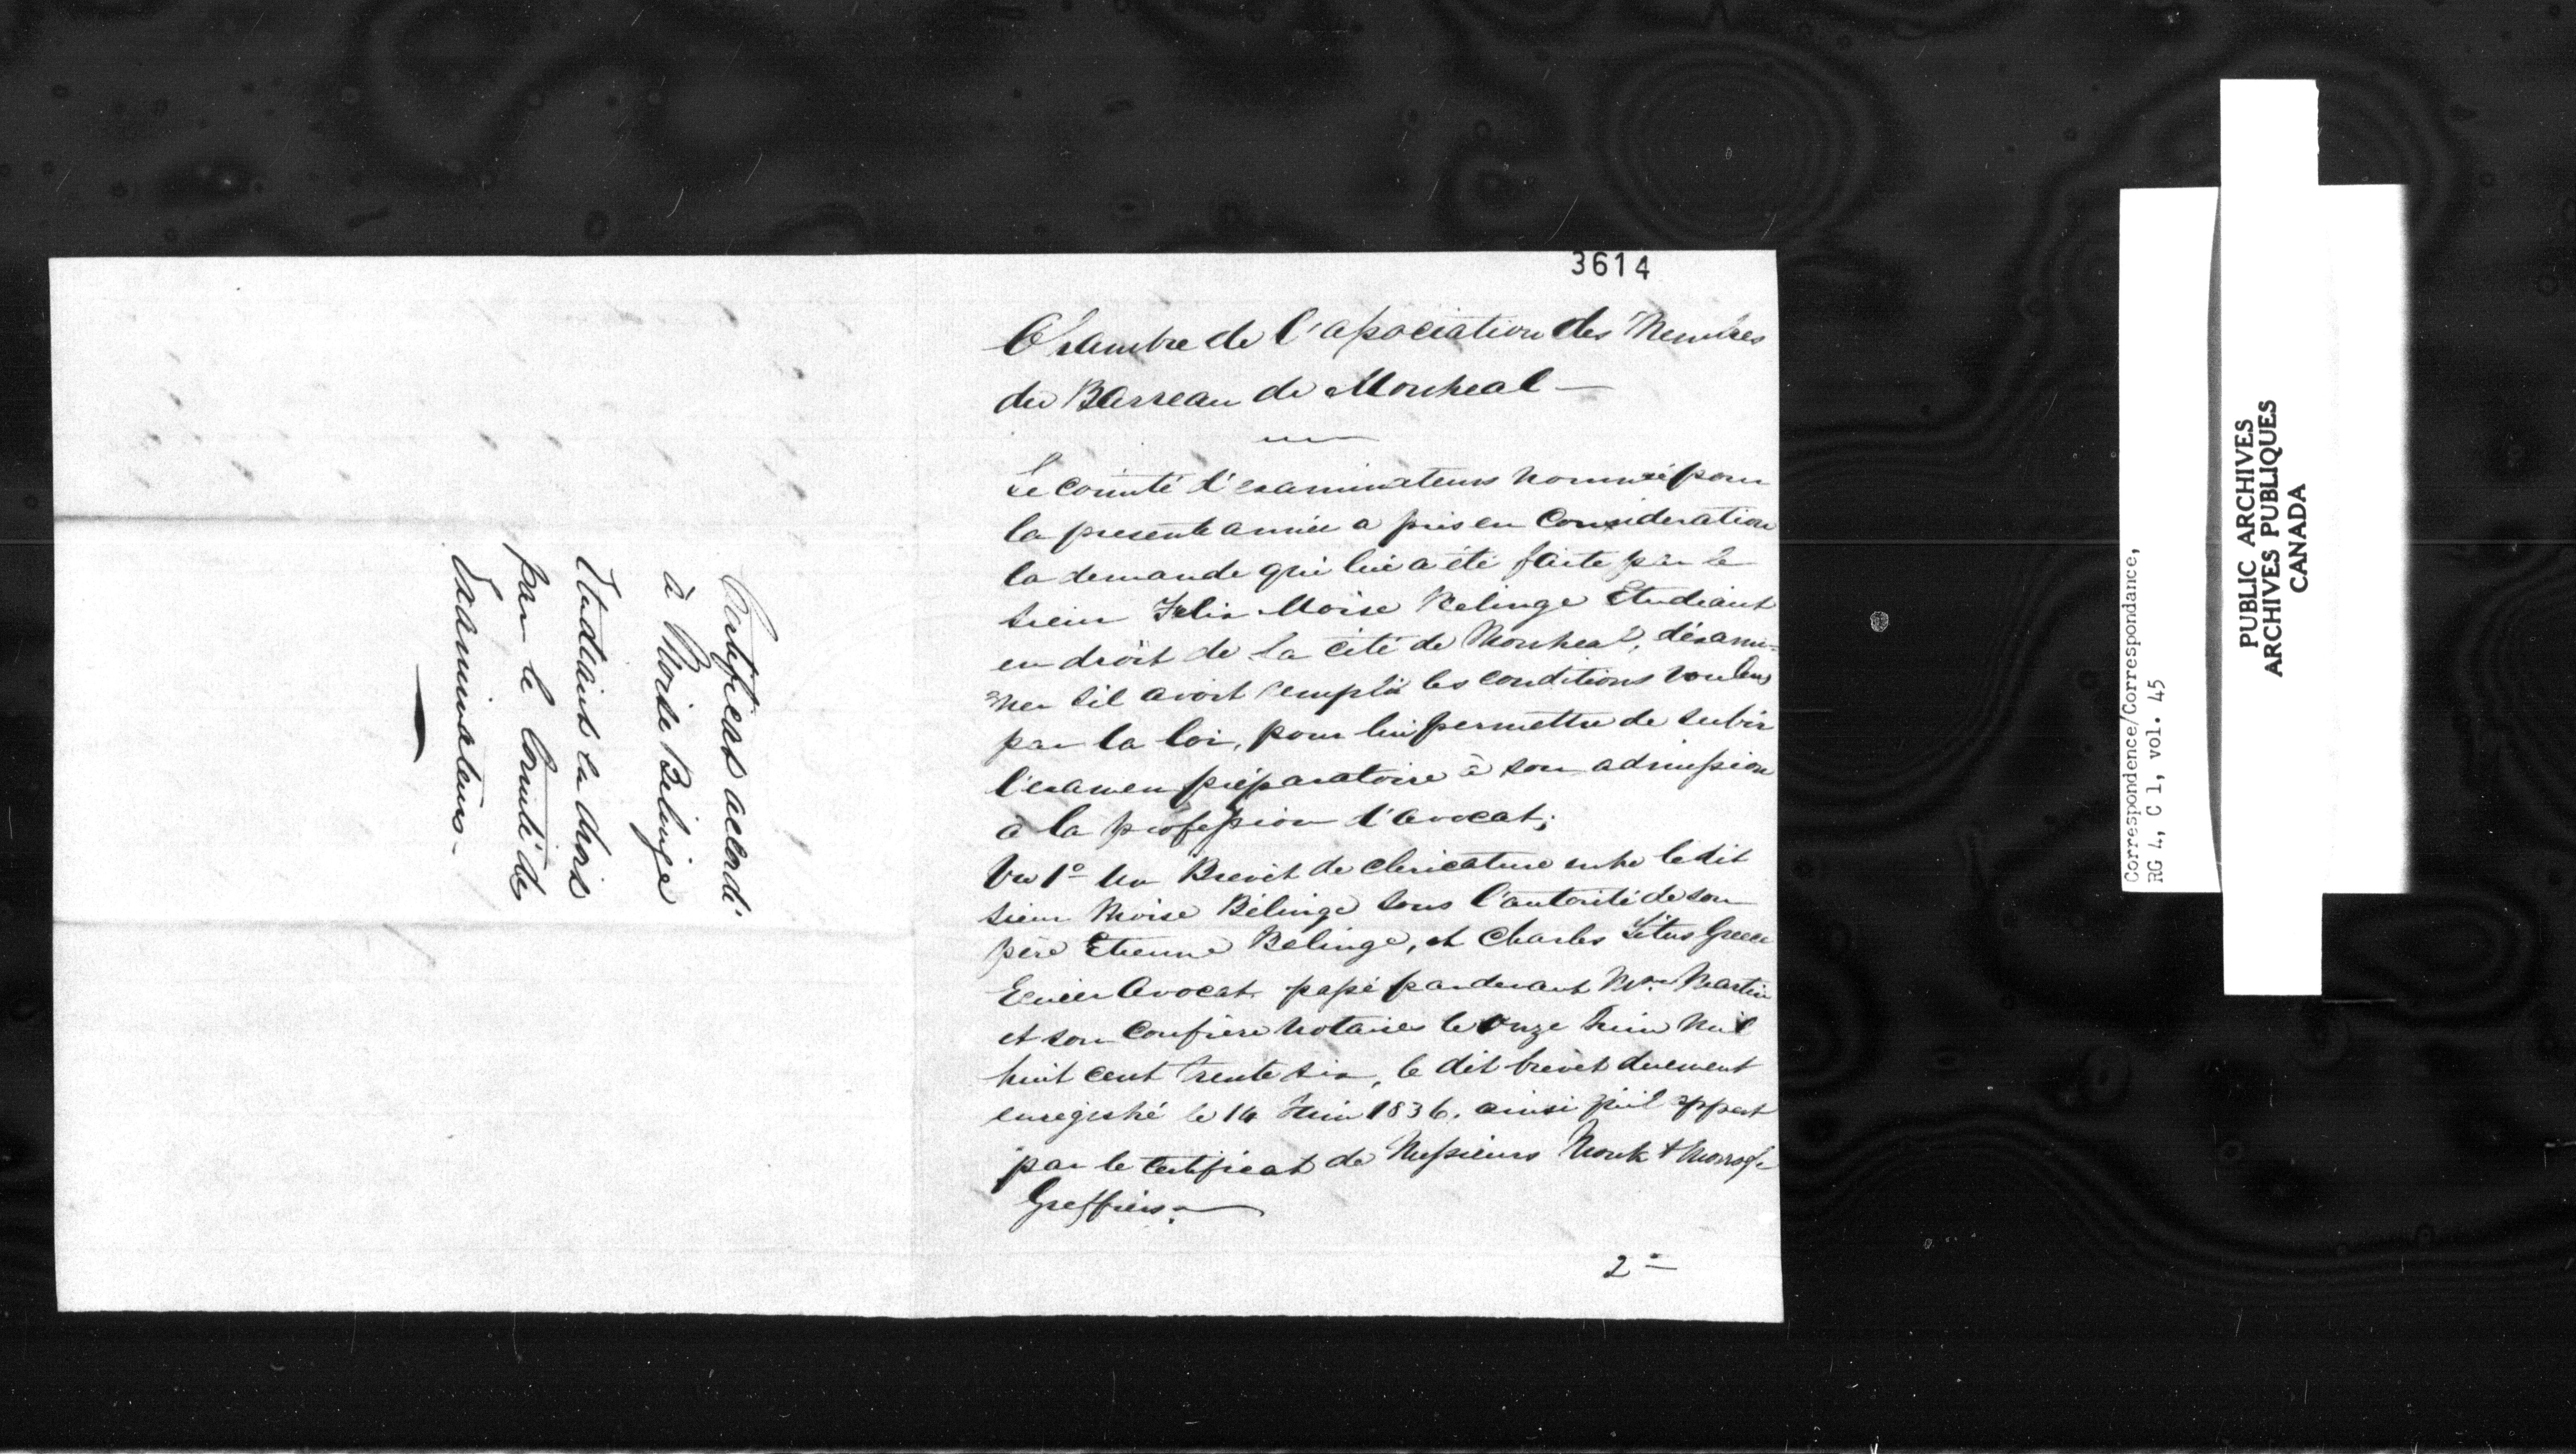 3614
Chambre de l'association des Membres
du Barreau de Montreal —
Le Comité d'examinateurs nommé pour
la presente année a pris en Consideration
la demande qui lui a été faite par le
Sieur Felix Moise Belinge Etudiant
en droit de la cité de Montreal, d'exami=
ner s'il avoit rempli les conditions voulues
par la loi, pour lui permettre de subir
l'examen préparatoire à son admission
à la profession d'avocat;
Vu 1o Un Brevet de clericature entre le dit
Sieur Moise Bélinge sous l'autorité de son
père Etienne Belinge, et Charles Titus Greece
Ecuier Avocat passé pardevant Martin
et son Confrère Notaires le Onze Juin Mil
huit cent trente six, le dit brevet duement
enregistré le 14 Juin 1836, ainsi qu'il appert
par le certificat de Messieurs Monk & Morrogh
Greffiers.
2o
Certificat accordé
à Moise Belinge
Etudiant en droit
par le Comité des
Examinateurs.
Correspondence/Correspondance,
RG 4, C 1, vol. 45
PUBLIC ARCHIVES
ARCHIVES PUBLIQUES
CANADA